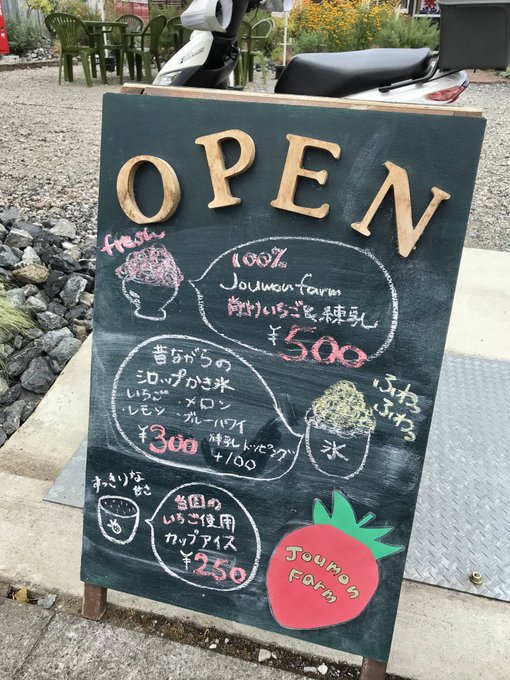 OPEN
fresh
100%
Joumon farm
削りいちご&練乳
¥500
昔ながらの
シロップかき氷
いちご ・メロン
・レモン ・ブルーハワイ
¥300 練乳トッピング
+100
ふわっ
ふわっ
氷
すっきりな
当園の
いちご使用
カップアイス
¥250
Joumon
Farm